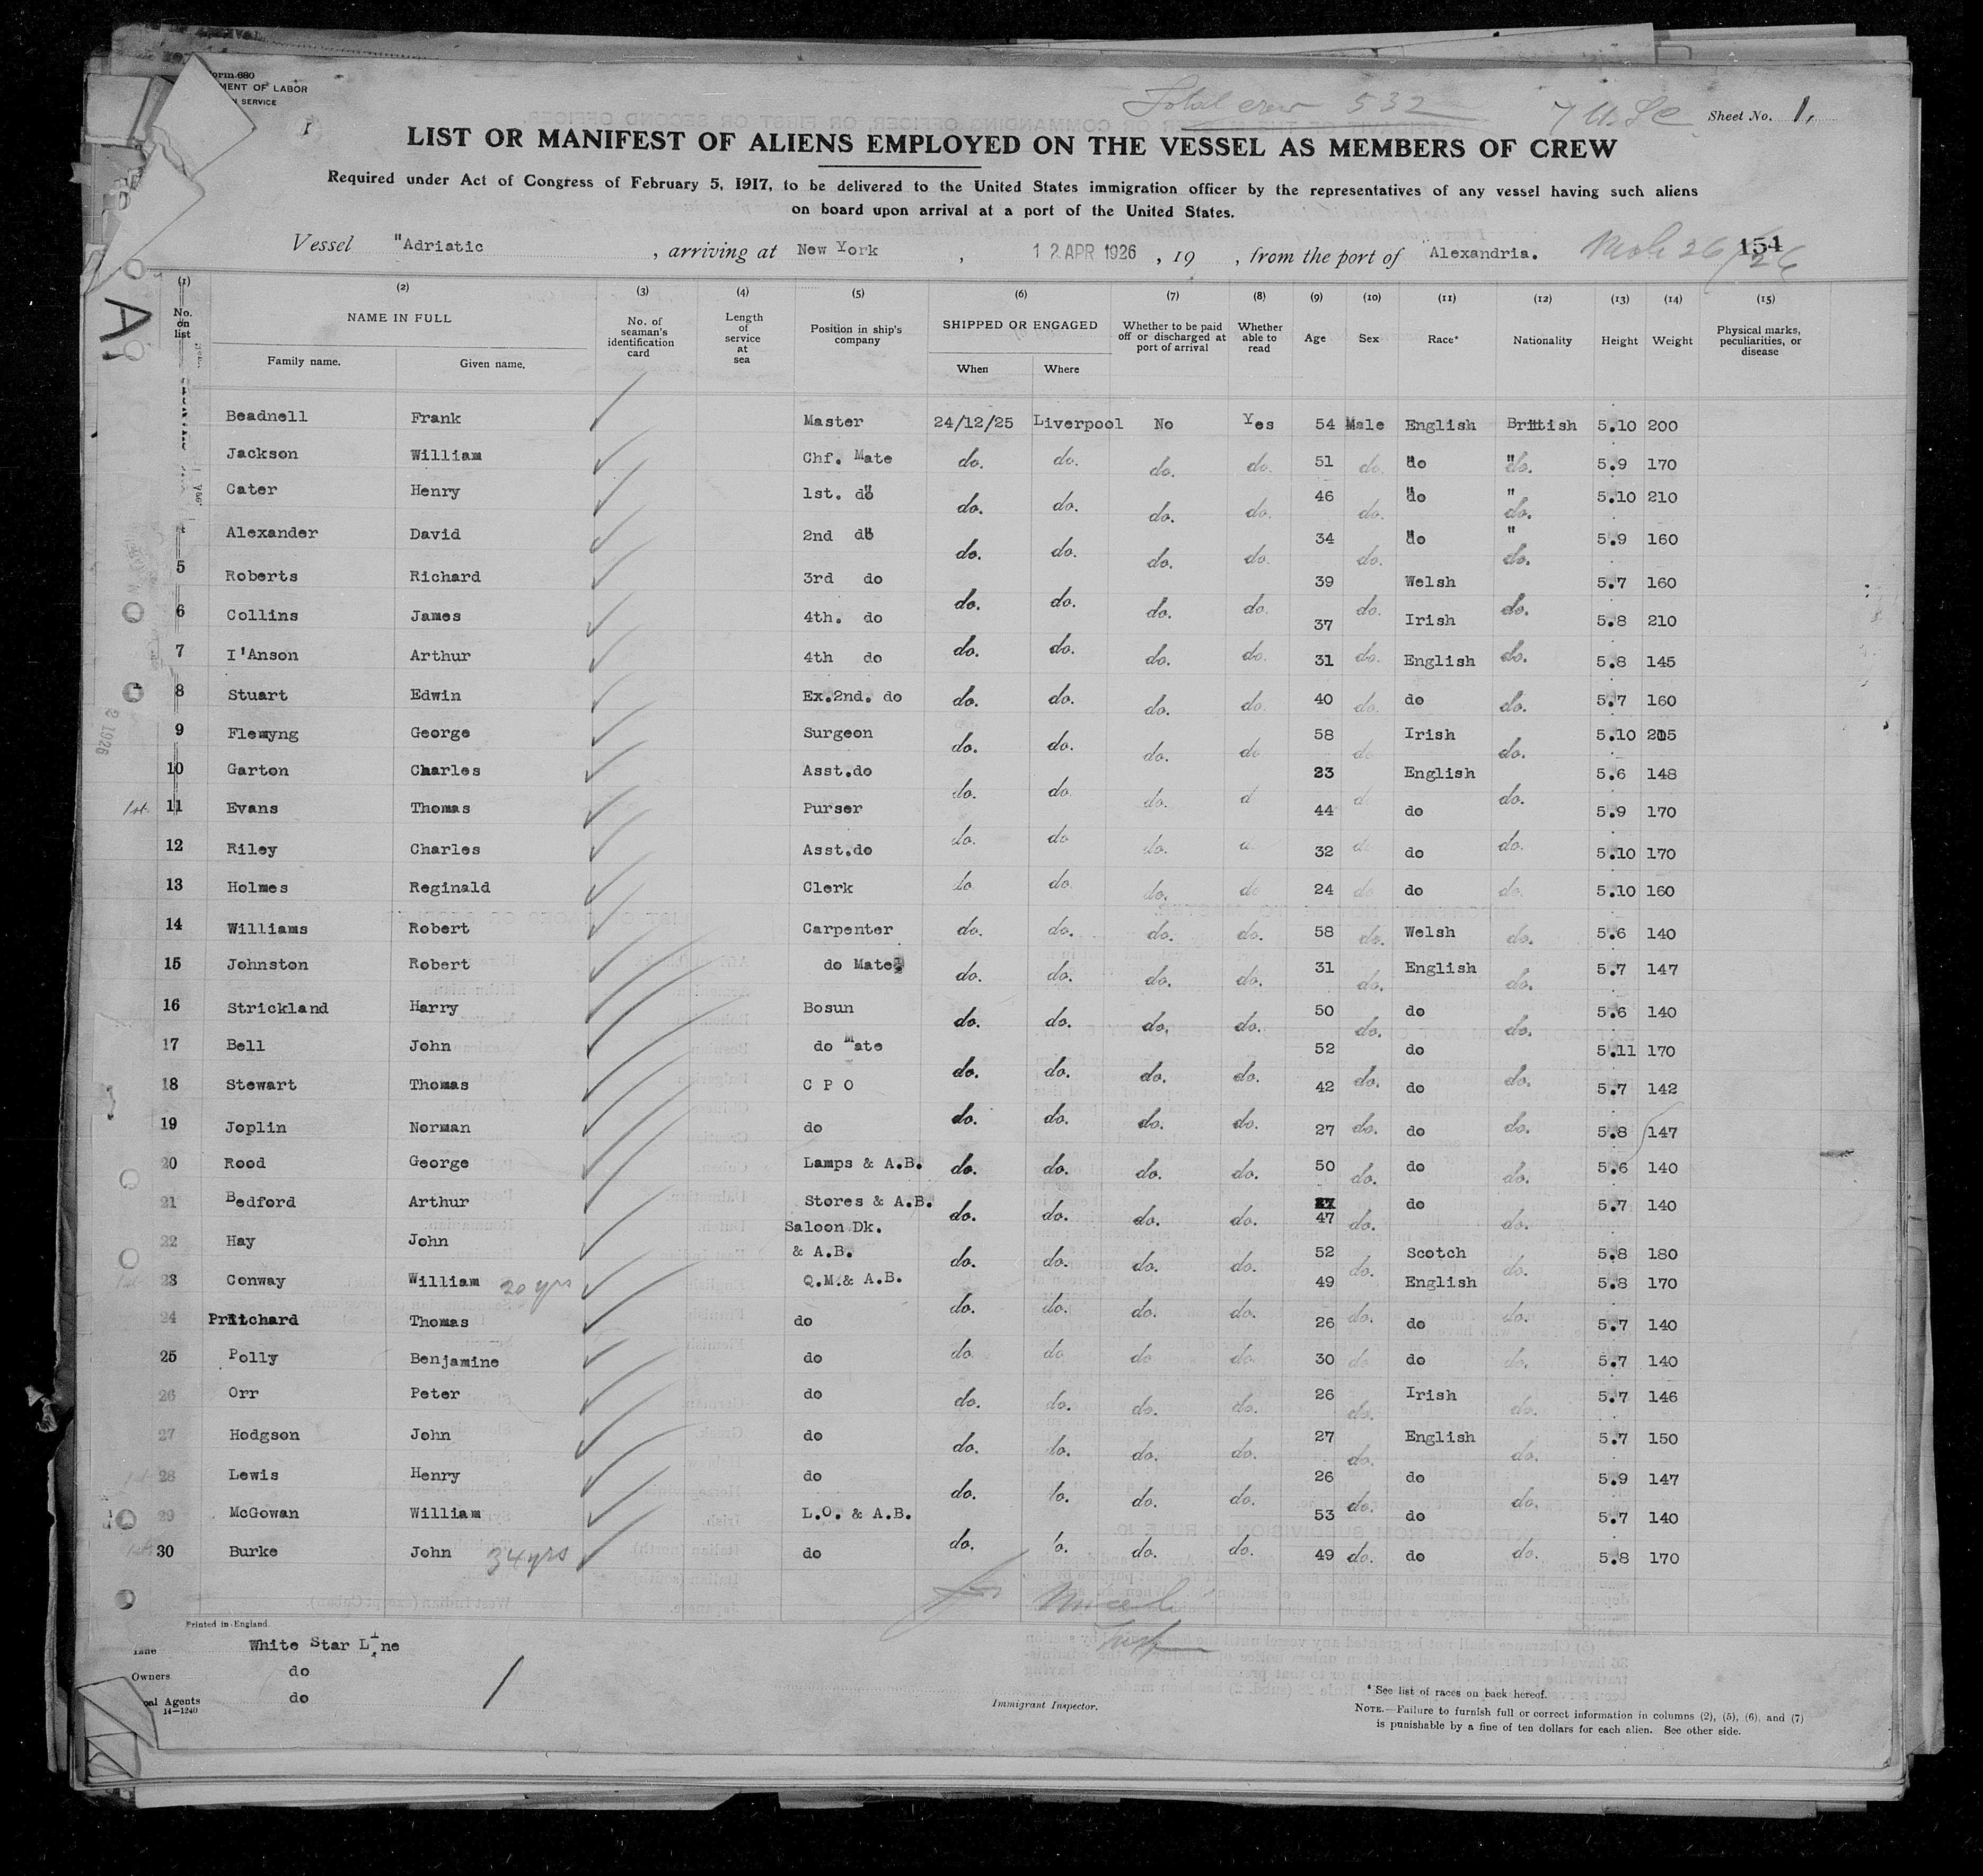 Form 680
MENT OF LABOR
N SERVICE
1
Total crew 532
7 U.S.C.
Sheet No. 1.
LIST OR MANIFEST OF ALIENS EMPLOYED ON THE VESSEL AS MEMBERS OF CREW
Required under Act of Congress of February 5, 1917, to be delivered to the United States immigration officer by the representatives of any vessel having such aliens
on board upon arrival at a port of the United States.
Vessel "Adriatic , arriving at New York , 12 APR 1926 , 19 , from the port of Alexandria. Mch 26/26 154
A.
(1) (2) (3) (4) (5) (6) (7) (8) (9) (10) (11) (12) (13) (14) (15)
No. on list NAME IN FULL Family name. Given name. No. of seaman's identification card Length of service at sea Position in ship's company SHIPPED OR ENGAGED When Where Whether to be paid off or discharged at port of arrival Whether able to read Age Sex Race* Nationality Height Weight Physical marks, peculiarities, or disease
Beadnell Frank Master 24/12/25 Liverpool No Yes 54 Male English British 5.10 200
Jackson William Chf. Mate do. do. do. do. 51 do. do " do. 5.9 170
Cater Henry 1st. do do. do. do. do. 46 do. do " do. 5.10 210
4 Alexander David 2nd do do. do. do. do. 34 do. do " do. 5.9 160
5 Roberts Richard 3rd do do. do. do. do. 39 do. Welsh do. 5.7 160
6 Collins James 4th. do do. do. do. do. 37 do. Irish do. 5.8 210
7 I'Anson Arthur 4th do do. do. do. do. 31 do. English do. 5.8 145
8 Stuart Edwin Ex.2nd. do do. do. do. do. 40 do. do do. 5.7 160
9 Flemyng George Surgeon do. do. do. do 58 do Irish do. 5.10 205
10 Garton Charles Asst.do do. do. do. d 23 d English do. 5.6 148
1st. 11 Evans Thomas Purser do. do do. d 44 d do do. 5.9 170
12 Riley Charles Asst.do do. do. do. do 32 do do do. 5.10 170
13 Holmes Reginald Clerk do. do. do. do 24 do do do. 5.10 160
14 Williams Robert Carpenter do. do. do. do. 58 do. Welsh do. 5.6 140
15 Johnston Robert do Mate do. do. do. do. 31 do. English do. 5.7 147
16 Strickland Harry Bosun do. do. do. do. 50 do. do do. 5.6 140
17 Bell John do Mate do. do. do. do. 52 do. do do. 5.11 170
18 Stewart Thomas C P O do. do. do. do. 42 do. do do. 5.7 142
19 Joplin Norman do do. do. do. do. 27 do. do do. 5.8 147
20 Rood George Lamps & A.B. do. do. do. do. 50 do. do do. 5.6 140
21 Bedford Arthur Stores & A.B. do. do. do. do. 47 do. do do. 5.7 140
22 Hay John Saloon Dk. & A.B. do. do. do. do. 52 do. Scotch do. 5.8 180
23 Conway William 20 yrs Q.M.& A.B. do. do. do. do. 49 do. English do. 5.8 170
24 Pritchard Thomas do do. do. do. do. 26 do. do do. 5.7 140
25 Polly Benjamine do do. do do. do. 30 do do do. 5.7 140
26 Orr Peter do do. do. do. do. 26 do. Irish do. 5.7 146
27 Hodgson John do do. do. do. do. 27 do. English do. 5.7 150
28 Lewis Henry do do. do. do. do. 26 do. do do. 5.9 147
29 McGowan William L.O. & A.B. do. do. do. do. 53 do. do do. 5.7 140
30 Burke John 34 yrs do 49 do. do 5.8 170
Printed in England.
Line White Star Line
Owners do
cal Agents do
14—1240
Immigrant Inspector.
* See list of races on back hereof.
NOTE.—Failure to furnish full or correct information in columns (2), (5), (6), and (7)
is punishable by a fine of ten dollars for each alien. See other side.